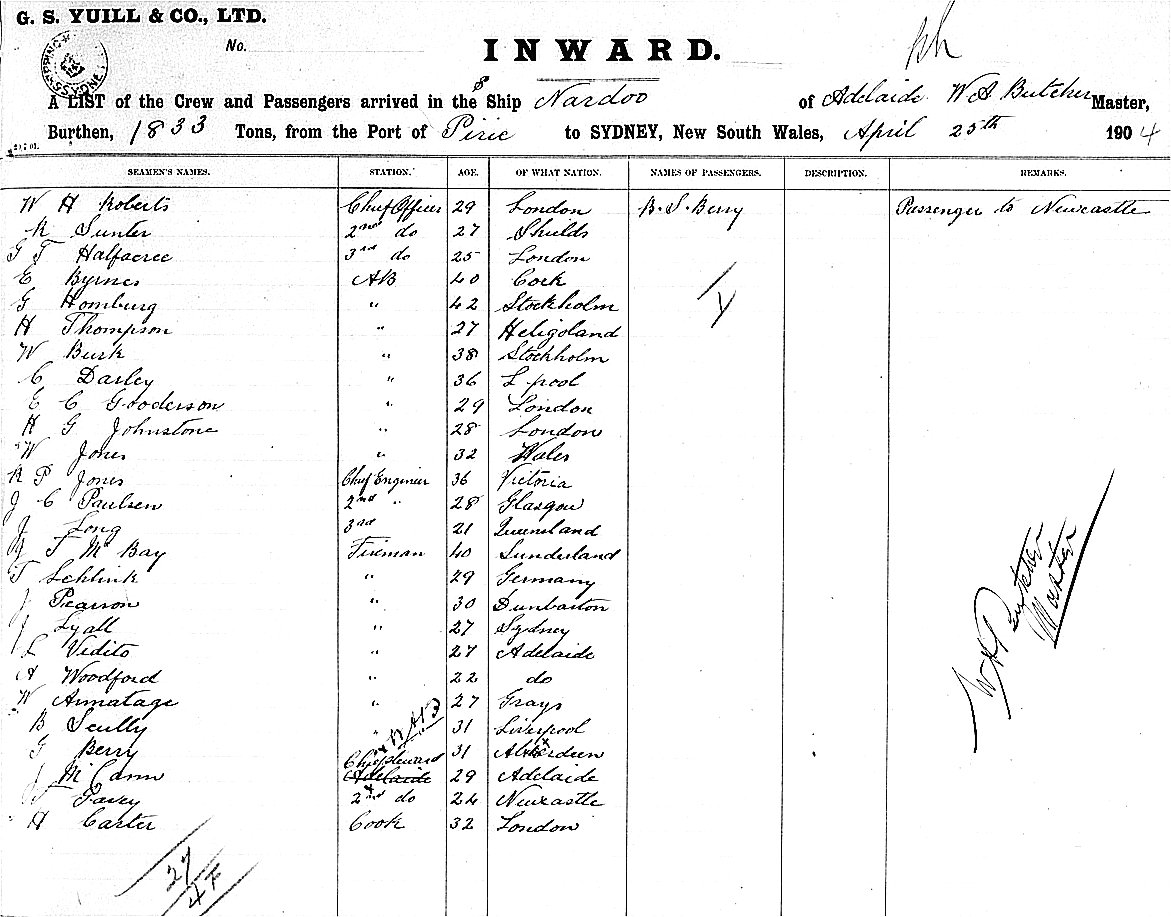 G. S. YUILL & CO., LTD.
No.
INWARD.
A LIST of the Crew and Passengers arrived in the SS Ship Nardoo of Adelaide W A Butcher Master,
Burthen, 1833 Tons, from the Port of Pirie to SYDNEY, New South Wales, April 25th 1904
SEAMEN'S NAMES. STATION. AGE. OF WHAT NATION. NAMES OF PASSENGERS. DESCRIPTION. REMARKS.
W H Roberts Chief Officer 29 London B. S. Berry Passenger to Newcastle
R Sunter 2nd do 27 Shields
G T Halfacree 3rd do 25 London
E Byrnes AB 40 Cork
G Homburg " 42 Stockholm
H Thompson " 27 Heligoland
W Burk " 38 Stockholm
C Darley " 36 L pool
E C Gooderson " 29 London
H G Johnstone " 28 London
W Jones " 32 Wales
R P Jones Chief Engineer 36 Victoria
J C Paulsen 2nd " 28 Glasgow
J Long 3rd 21 Queensland
T McBay Fireman 40 Sunderland
T Schlink " 29 Germany
J Pearson " 30 Dunbarton
J Lyall " 27 Sydney
L Vidito " 27 Adelaide
A Woodford " 22 do
W Armatage " 27 Grays
B Scully " 31 Liverpool
G Berry Chief Steward 31 Aberdeen
J McCann Adelaide 29 Adelaide
Pavey 2nd do 24 Newcastle
H Carter Cook 32 London
W A Butcher
Master
27
4F